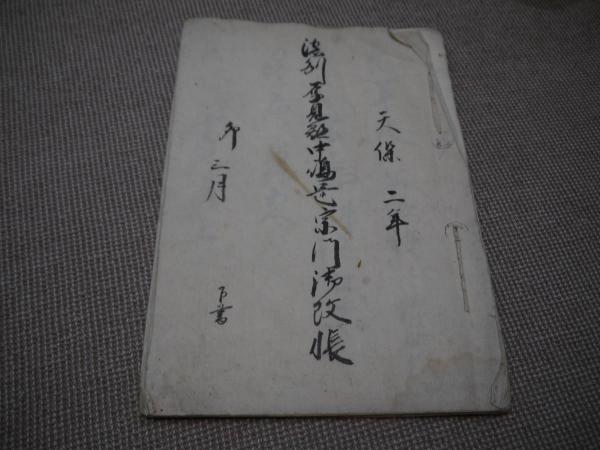 天保二年
濃州厚見郡中嶋邑宗門御改帳
卯三月
下書